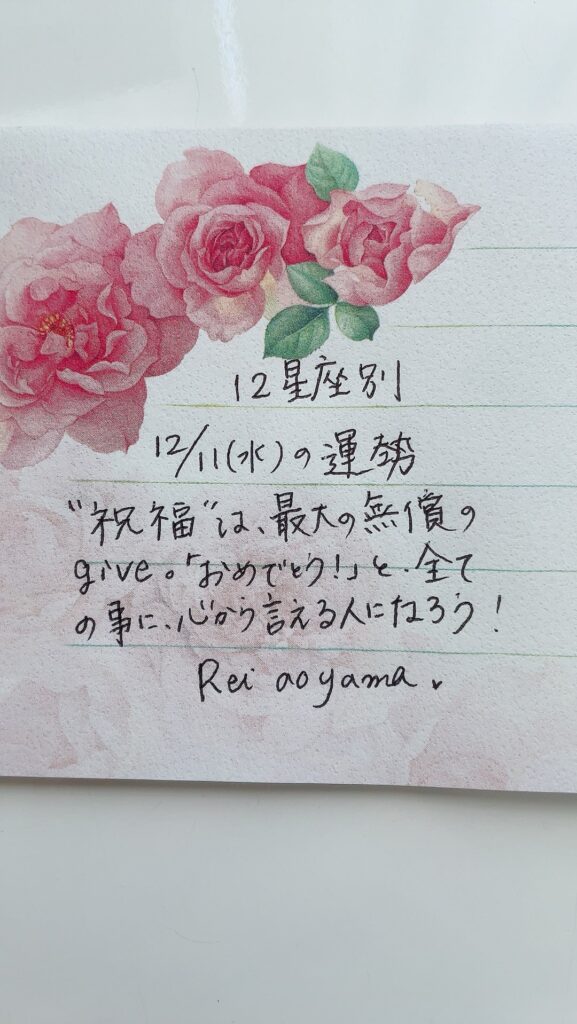 12星座別
12/11(水)の運勢
"祝福"は、最大の無償の
give。「おめでとう!」と、全て
の事に、心から言える人になろう!
Rei aoyama